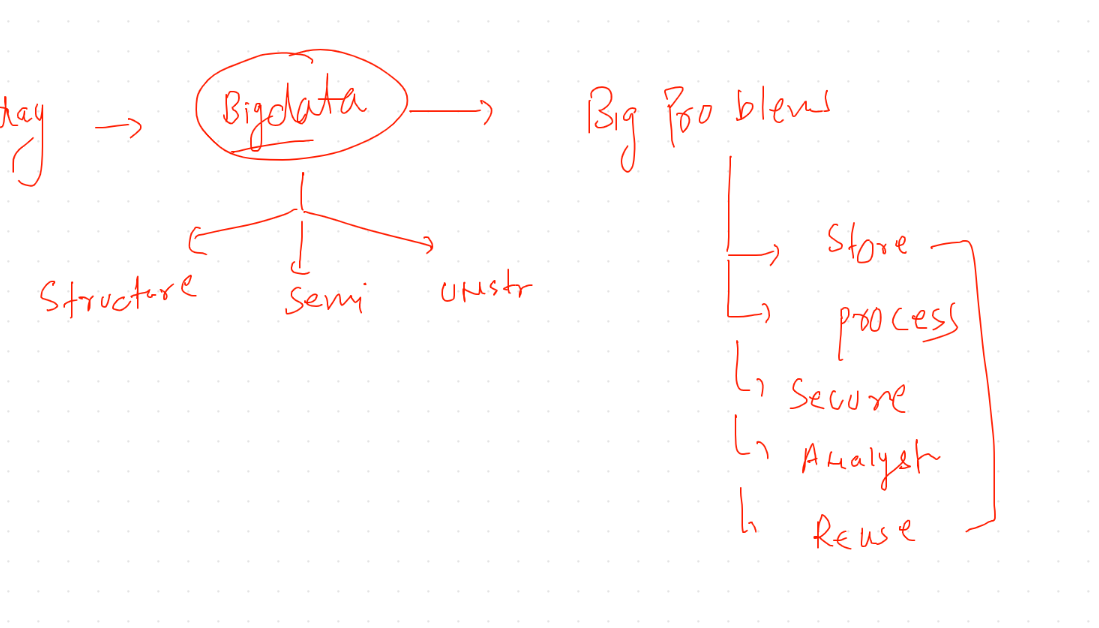 Bigdata
Big Problems
Structure
Semi
unstr
Store
process
Secure
Analyst
Reuse